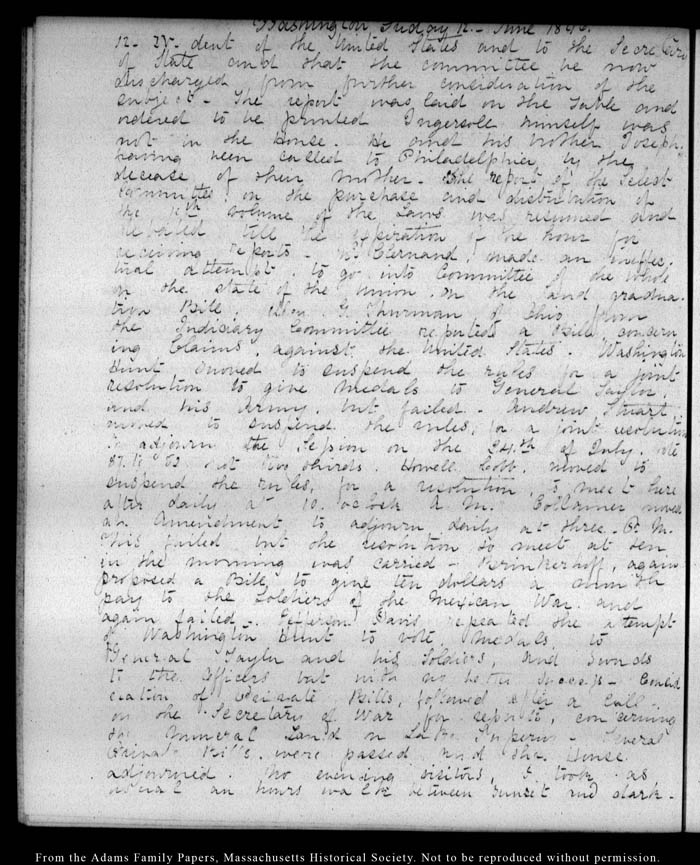 Washington Friday 12. June 1846.
12. IV. dent of the United States and to the Secretary
of State and that the committee be now
discharged from further consideration of the
subject - The report was laid on the table and
ordered to be printed Ingersoll himself was
not in the House. He and his brother Joseph,
having been called to Philadelphia by the
decease of their mother - The report of the Select
Committee, on the purchase and distribution of
the volume of the Laws was resumed and
debated till the expiration of the hour for
receiving reports - McClernand, made an ineffec
tual attempt, to go into Committee of the whole
on the state of the Union, on the land gradua
tion Bill, Allen G Thurman of Ohio from
the Judiciary Committee reported a Bill concern
ing Claims, against the United States. Washington
Hunt moved to suspend the rules for a joint
resolution to give medals to General Taylor
and his Army, but failed - Andrew Stuart
moved to suspend the rules, for a joint resolution
to adjourn the Session on the 24th of July.
87. to 83 not two thirds. Howell Cobb, moved to
suspend the rules, for a resolution, to meet here
after daily at 10. oclock A.M. Collamer moved
an Amendment to adjourn daily at three. P.M.
This failed but the resolution to meet at ten
in the morning was carried - Brinkerhoff, again
proposed a Bill to give ten dollars a month
pay to the Soldiers of the Mexican War. and
again failed - Jefferson Davis repeated the attempt
of Washington Hunt to vote, Medals to
General Taylor and his Soldiers, and Swords
to the Officers but with no better success - Consid
eration of Private Bills, followed after a call
on the Secretary of War for reports, concerning
the Mineral Land on Lake Superior - Several
Private Bills were passed and the House
adjourned. No evening visitors, I took as
usual an hours walk between sunset and dark -
From the Adams Family Papers, Massachusetts Historical Society. Not to be reproduced without permission.